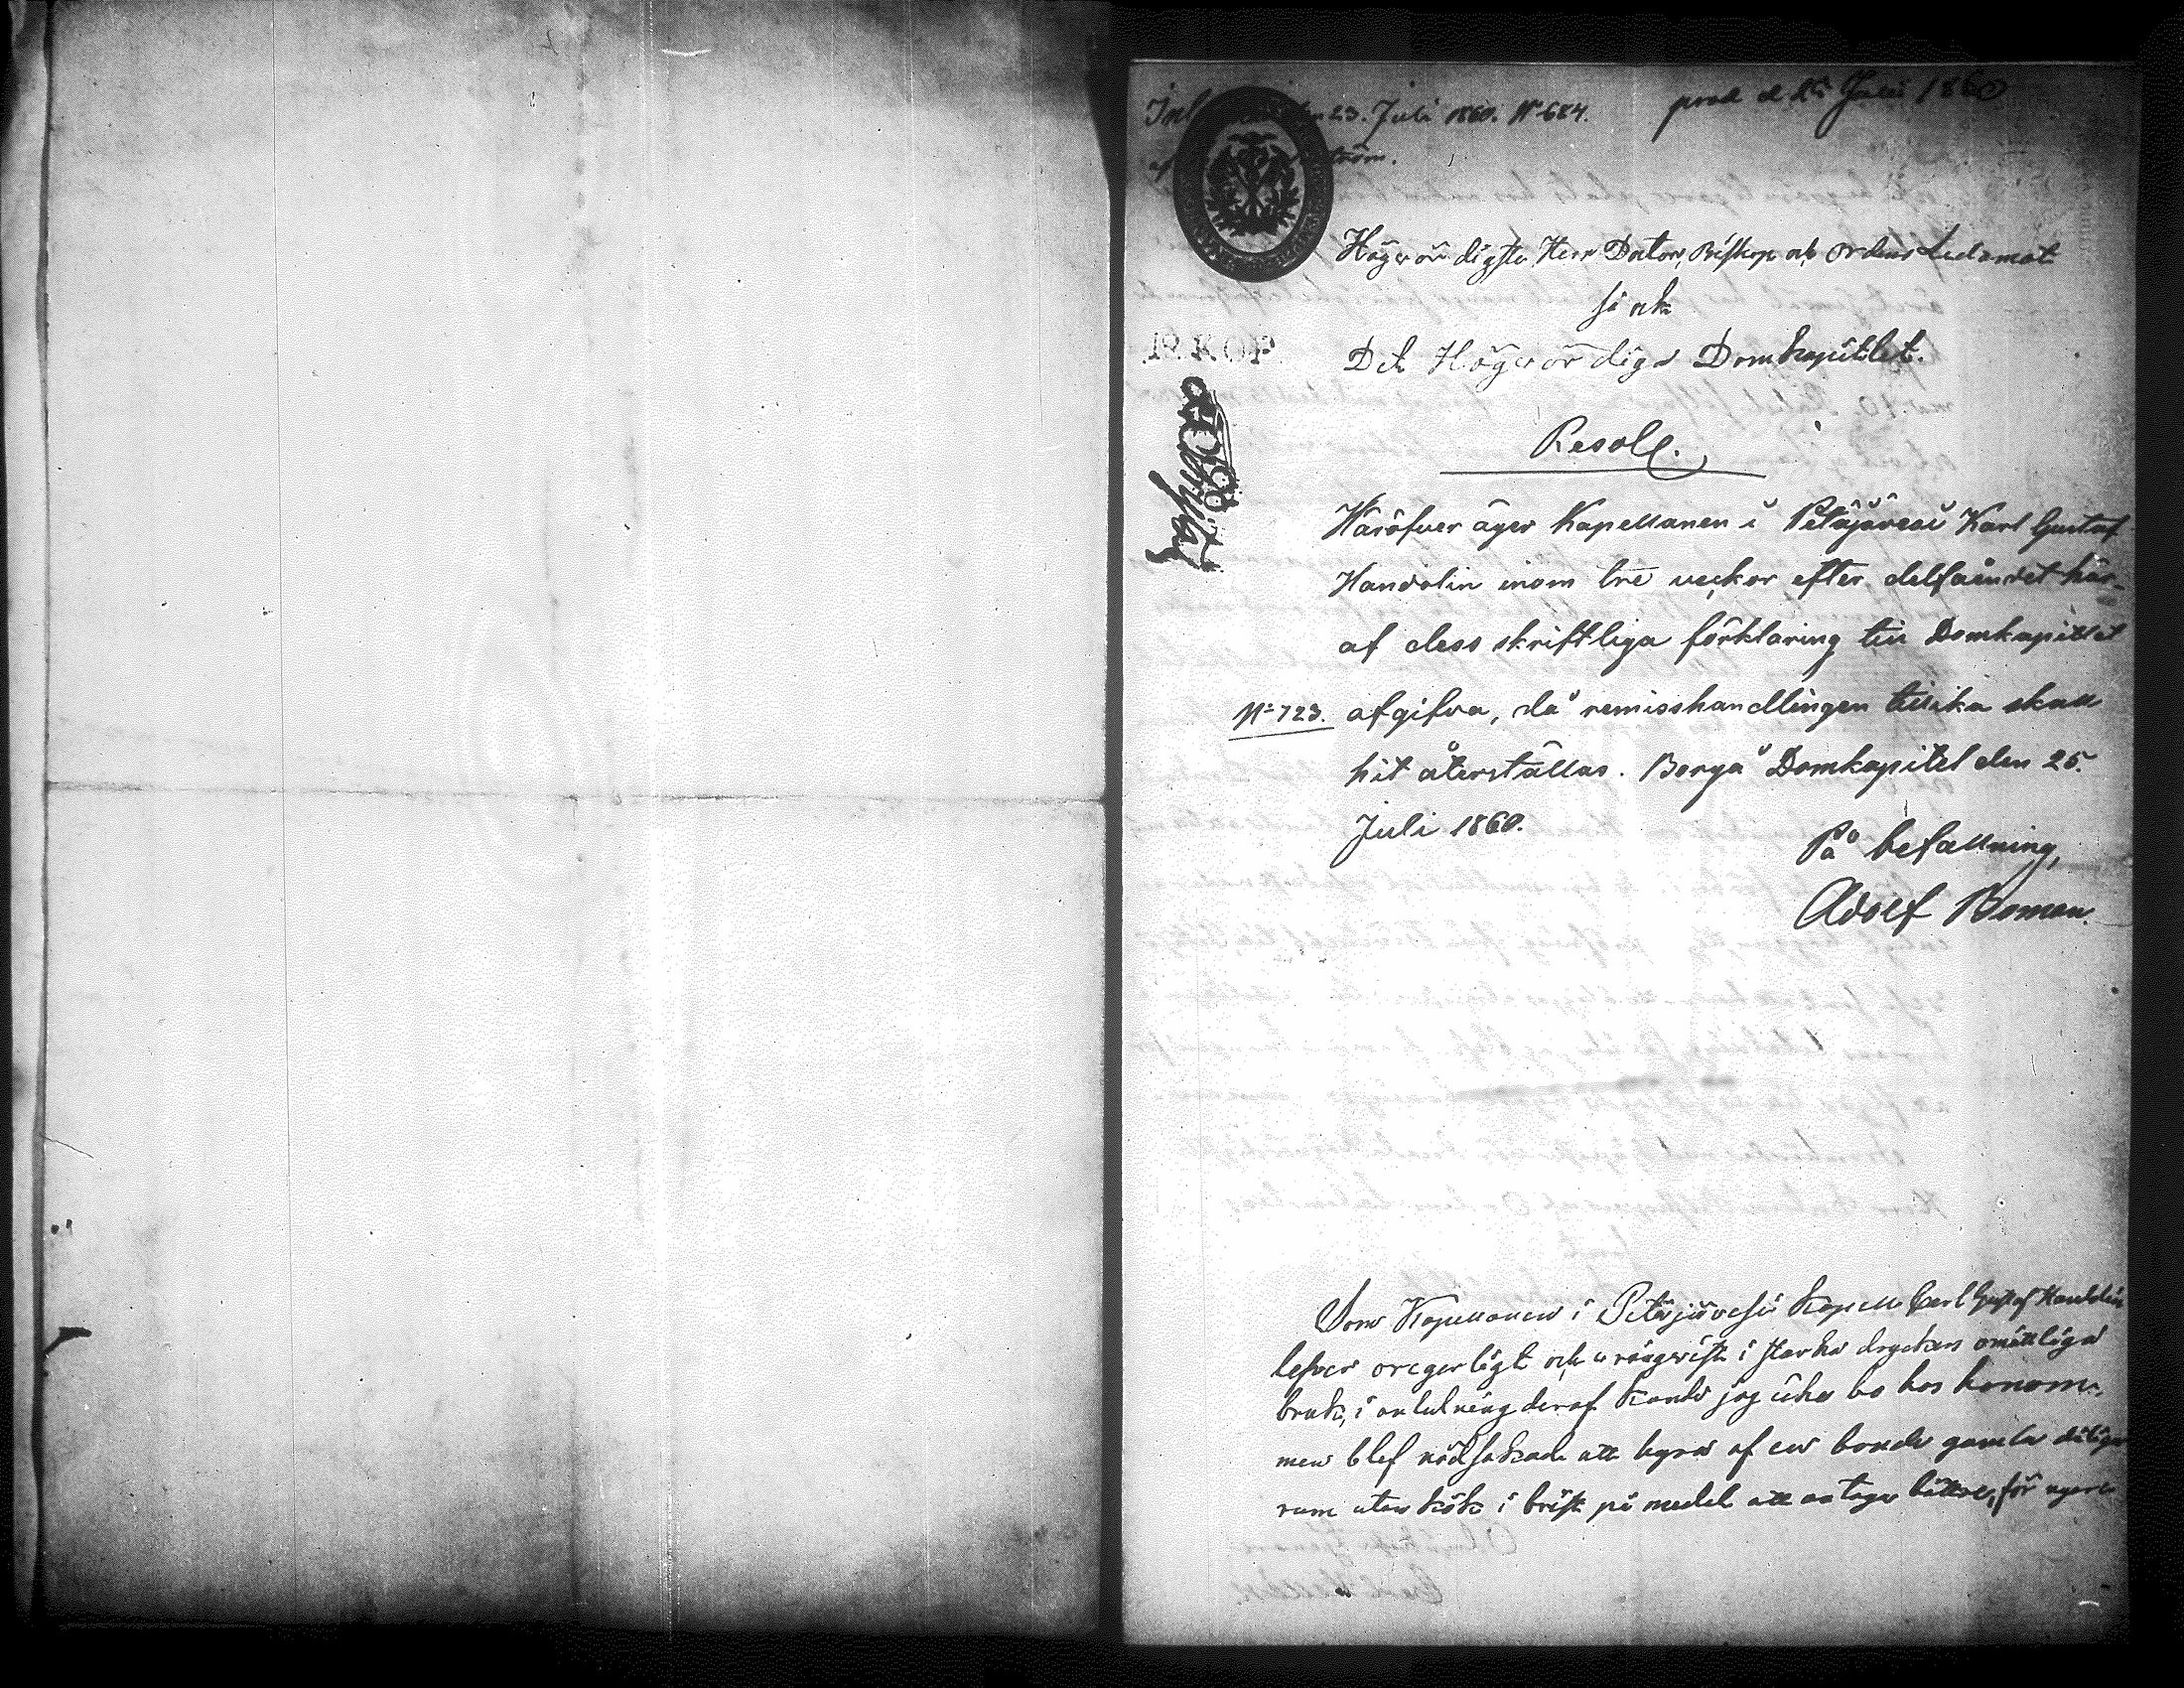 23. Juli 1860. Nº 684.
prod d 25 Juli 1860
Högvördigste Herr Doctor, Biskop och Ordens Ledamot
så ock
Det Högvördiga Domkapitlet.
12 KOP.
Resol.
Häröfver äger Kapellanen i Petäjävesi Karl Gustaf
Handolin inom tre veckor efter delfåendet här-
af dess skriftliga förklaring till Domkapitlet
Nº 723. afgifva, då remisshandlingen tillika skall
hit återställas. Borgå Domkapitel den 25.
Juli 1860.
På befallning,
Adolf Boman.
Som Kapellanen i Petäjävesi Kapell Carl Gustaf Handolin
lefver oregerligt och i starka dryckers omåttliga
bruk, i anledning deraf kunde jag icke bo hos honom,
men blef nödsakade att hyra af en bonde gamla dåliga
rum utan kök i brist på medel att antaga bättre, för